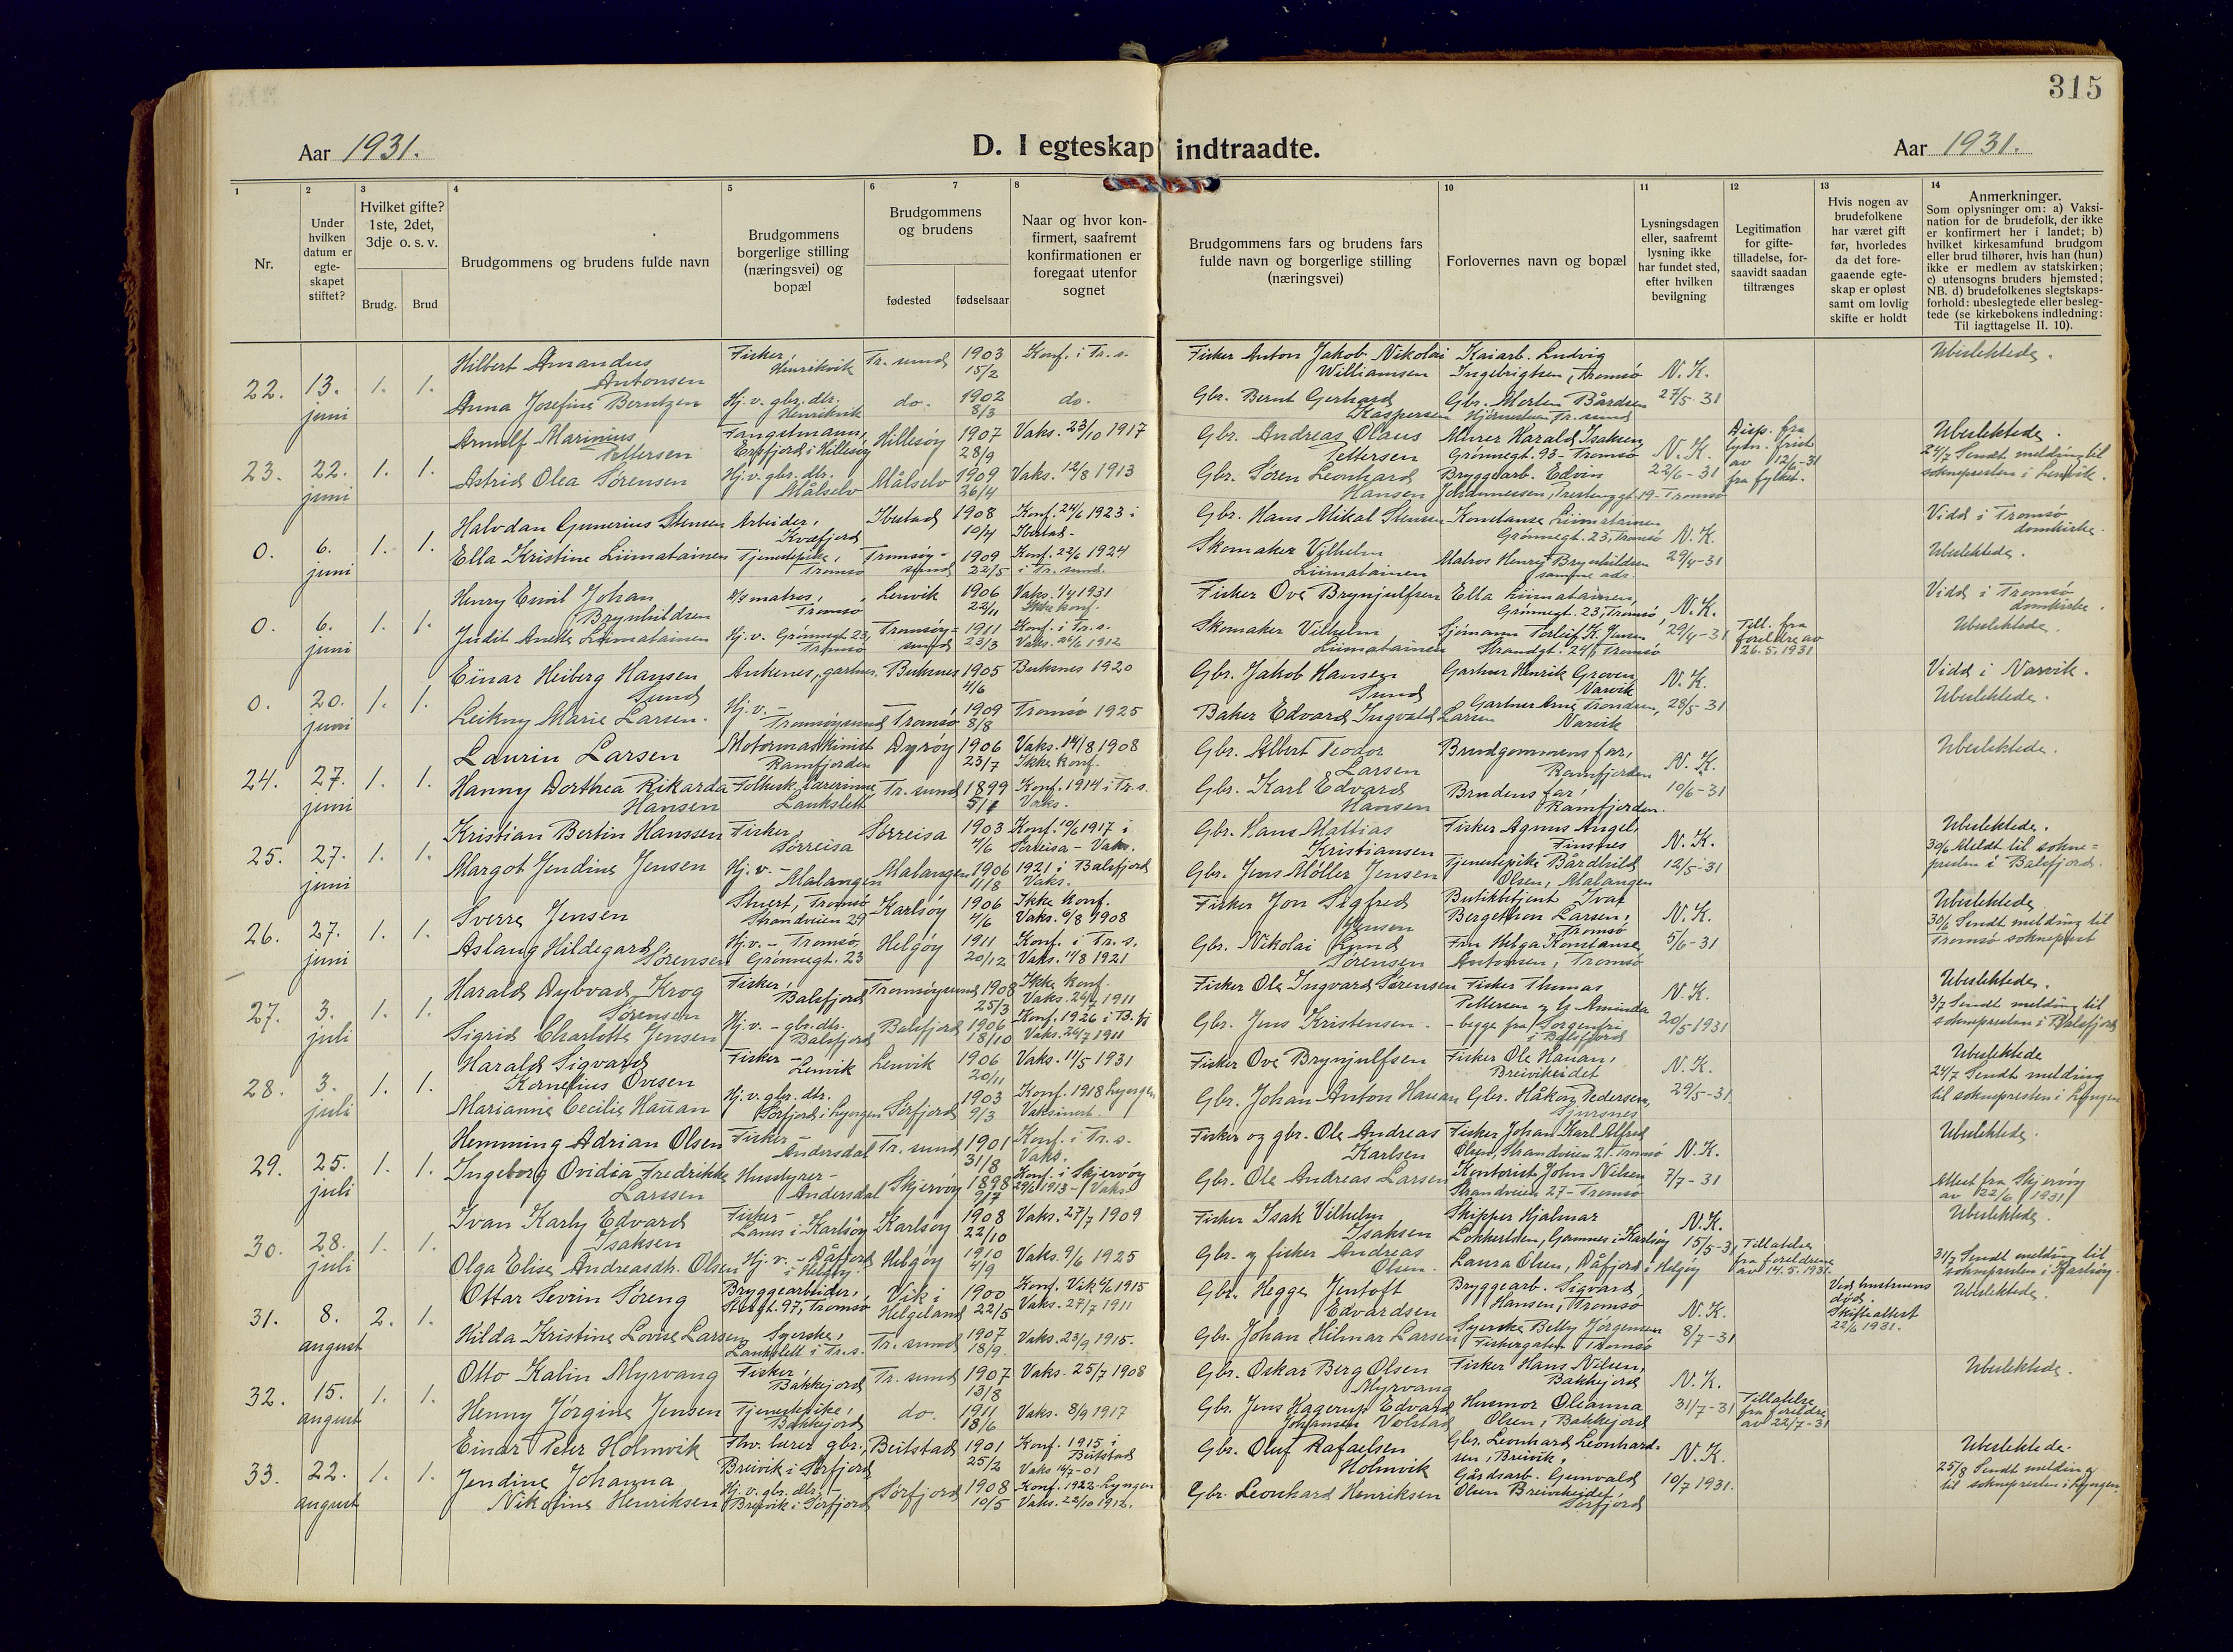 315
Aar 1931.
D. I egteskap indtraadte.
Aar 1931.
1 2 3 4 5 6 7 8 10 11 12 13 14
Nr.
Under hvilken datum er egte-skapet stiftet?
Hvilket gifte? 1ste, 2det, 3dje o. s. v.
Brudg. Brud
Brudgommens og brudens fulde navn
Brudgommens borgerlige stilling (næringsvei) og bopæl
Brudgommens og brudens
fødested fødselsaar
Naar og hvor kon-firmert, saafremt konfirmationen er foregaat utenfor sognet
Brudgommens fars og brudens fars fulde navn og borgerlige stilling (næringsvei)
Forlovernes navn og bopæl
Lysningsdagen eller, saafremt lysning ikke har fundet sted, efter hvilken bevilgning
Legitimation for gifte-tilladelse, for-saavidt saadan tiltrænges
Hvis nogen av brudefolkene har været gift før, hvorledes da det fore-gaaende egte-skap er opløst samt om lovlig skifte er holdt
Anmerkninger.
Som oplysninger om: a) Vaksi-nation for de brudefolk, der ikke er konfirmert her i landet; b) hvilket kirkesamfund brudgom eller brud tilhører, hvis han (hun) ikke er medlem av statskirken; c) utensogns bruders hjemsted; NB. d) brudefolkenes slegtskaps-forhold: ubeslegtede eller besleg-tede (se kirkebokens indledning: Til iagttagelse II. 10).
22. 13. juni 1. 1.
Hilbert Amandus Antonsen Fisker, Henrikvik Tr. sund 1903 15/2 Konf. i Tr. s. Fisker Anton Jakob Nikolai Williamsen Kaiarb. Ludvig Ingebrigtsen, Tromsø N. K. 27/5-31 Ubeslektede.
Anna Josefine Berntzen Hj. v. gbr. dtr. Henrikvik do. 1902 8/3 do. Gbr. Bernt Gerhard Kaspersen Gbr. Merten Bårdsen Tr. sund
23. 22. juni 1. 1.
Arnulf Marinius Pettersen Fangstmann, Hillesøy 1907 28/9 Vaks. 23/10 1917 Gbr. Andreas Olaus Pettersen Murer Harald Isaksen Grønnegt. 93 - Tromsø N. K. 22/6-31 Disp. fra lysn. frist av 12/6-31 fra fylket. Ubeslektede.
Astrid Olea Sørensen Hj. v. gbr. dtr. Målselv Målselv 1909 26/4 Vaks. 12/8 1913 Gbr. Søren Leonhard Hansen Bryggearb. Edvin Johannessen, 19 - Tromsø 24/7 Sendt melding til soknepresten i Lenvik.
0. 6. juni 1. 1.
Halvdan Gunerius Stensen Arbeider, Kvæfjord Ibestad 1908 10/4 Konf. 24/6 1923 i Ibestad. Gbr. Hans Mikal Stensen Konstanse Liimatainen Grønnegt. 23, Tromsø N. K. 29/4-31 Vidd i Tromsø domkirke.
Ella Kristine Liimatainen Tjenestepike, Tromsø Tromsøysund 1909 22/5 Konf. 22/6 1924 i Tr. sund. Skomaker Vilhelm Liimatainen Matros Henry Brynhildsen samme adr. Ubeslektede.
0. 6. juni 1. 1.
Henry Emil Johan Brynhildsen matros, Tromsø Lenvik 1906 22/11 Vaks. 1931 Ikke konf. Fisker Ove Brynjulfsen Ella Liimatainen, Grønnegt. 23, Tromsø, N. K. 29/4-31 Vidd i Tromsø domkirke.
Judit Anette Liimatainen Hj. v. Grønnegt 23, Tromsø Tromsøysund 1911 23/3 Konf. i Tr. s. Vaks. 26/6 1912 Skomaker Vilhelm Liimatainen Sjømann Torleif K. Jensen Strandgt. 24, Tromsø Till. fra foreldre av 26. 5. 1931 Ubeslektede.
0. 20. juni 1. 1.
Einar Heiberg Hansen Sund Ankenes, gartner. Buksnes 1905 4/6 Buksnes 1920 Gbr. Jakob Hansen Sund Gartner Henrik Greven, Narvik N. K. 28/5-31 Vidd i Narvik.
Leikny Marie Larsen. Hj. v. - Tromsøysund Tromsø 1909 8/8 Tromsø 1925 Baker Edvard Ingvald Larsen Gartner Arne Trondsen, Narvik Ubeslektede.
24. 27. juni 1. 1.
Laurin Larsen Motormaskinist Ramfjorden Dyrøy 1906 23/7 Vaks. 14/8 1908 Ikke konf. Gbr. Albert Teodor Larsen Brudgommens far, Ramfjorden N. K. 10/6-31 Ubeslektede.
Hanny Dorthea Rikarda Hansen Folkesk. lærerinne Laukslett Tr. sund 1899 Konf. 1914 i Tr. s. Vaks. Gbr. Karl Edvard Hansen Brudens far, Ramfjorden.
25. 27. juni 1. 1.
Kristian Bertin Hanssen Fisker, Sørreisa Sørreisa 1903 4/6 Konf. 10/6 1917 i Sørreisa - Vaks. Gbr. Hans Mattias Kristiansen Fisker Agnus Angel, Finsnes N. K. 12/5-31 Ubeslektede.
Margot Jendine Jensen Hj. v. - Malangen Malangen 1906 11/8 1921 i Balsfjord Vaks. Gbr. Jens Møller Jensen Tjenestepike Bårdhild Olsen, Malangen 30/6 Meldt til soknepresten i Balsfjord.
26. 27. juni 1. 1.
Sverre Jensen Stuert, Tromsø Strandveien 29 Karlsøy 1906 4/6 Ikke konf. Vaks. 6/8 1908 Fisker Jon Sigfred Jensen Butikbetjent Ivar Bergethon Larsen, Tromsø N. K. 5/6-31 Ubeslektede
Aslaug Hildegard Sørensen Hj. v. - Tromsø, Grønnegt. 23 Helgøy 1911 20/12 Konf. i Tr. s. Vaks. 1921 Gbr. Nikolai Sørensen Fru Helga Konstanse Antonsen, Tromsø 30/6 Sendt melding til Tromsø sokneprest
27. 3. juli 1. 1.
Harald Dybvad Krog Sørensen Fisker, Balsfjord Tromsøysund 1908 25/3 Ikke konf. Vaks. 24/7 1911 Fisker Ole Ingvard Sørensen Fisker Thomas Pettersen og Aminda - begge fra Sorgenfri i Balsfjord N. K. 20/5 1931 Ubeslektede.
Sigrid Charlotte Jensen Hj. v. - gbr. dtr. Balsfjord Balsfjord 1906 18/10 Konf. 1926 i B. fj Vaks. 24/7 1911 Gbr. Jens Kristensen. 3/7 Sendt melding til soknepresten i Balsfjord
28. 3. juli 1. 1.
Harald Sigvard Kornelius Ovesen Fisker - Lenvik Lenvik 1906 20/11 Vaks. 11/5 1931 Fisker Ove Brynjulfsen Fisker Ole Hauan, Breivikeidet N. K. 29/5-31. Ubeslektede
Marianne Cecilie Hauan Hj. v. gbr. dtr. Sørfjord i Lyngen Sørfjord 1903 9/3 Konf. 1918 Lyngen Vaksinert. Gbr. Johan Anton Hauan Gbr. Håkon Pedersen, Sjursnes 24/7 Sendt melding til soknepresten i Lyngen
29. 25. juli 1. 1.
Hemming Adrian Olsen Fisker - Andersdal Tr. sund 1901 31/8 Konf. i Tr. s. Vaks. Fisker og gbr. Ole Andreas Karlsen Fisker Johan Karl Alfred Olsen, Strandveien 21. Tromsø N. K. 7/7-31 Ubeslektede.
Ingeborg Ovidia Fredrikke Larssen Husstyrer - Andersdal Skjervøy 1898 9/7 Konf. i Skjervøy 29/6 1913 - Vaks. Gbr. Ole Andreas Larsen Kontorist John Nilsen Strandveien 27 - Tromsø Attest fra Skjervøy av 22/6 1931
30. 28. juli 1. 1.
Ivan Karly Edvard Isaksen Fisker - i Karlsøy Karlsøy 1908 22/10 Vaks. 27/7 1909 Fisker Isak Vilhelm Isaksen Skipper Hjalmar Gamnes i Karlsøy N. K. 15/5-31 Ubeslektede.
Olga Elise Andreasdtr. Olsen Hj. v. - Dåfjord i Helgøy. Helgøy 1910 4/9 Vaks. 9/6 1925 Gbr. og fisker Andreas Olsen. Laura Olsen, Dåfjord i Helgøy Tillatelse fra foreldrene av 14. 5. 1931. 31/7 Sendt melding til soknepresten i Karlsøy.
31. 8. august 2. 1.
Ottar Sevrin Søreng Bryggearbeider, 97, Tromsø Vik i Helgeland 1900 22/5 Konf. Vik 1915 Vaks. 27/7 1911 Gbr. Hegge Jentoft Edvardsen Bryggearb. Sigvard Hansen, Tromsø N. K. 8/7-31 Ved hustruens død. Skifteattest 22/6 1931. Ubeslektede.
Hilda Kristine Lovise Larsen Syerske, Laukslett i Tr. s. Tr. sund 1907 18/9. Vaks. 23/9 1915. Gbr. Johan Hilmar Larsen Syerske Betty Jørgensen Fiskergaten Tromsø
32. 15. august 1. 1.
Otto Kalin Myrvang Fisker, Bakkejord Tr. sund 1907 13/8 Vaks. 25/7 1908 Gbr. Oskar Berg Olsen Myrvang Fisker Hans Nilsen, Bakkejord N. K. 31/7-31 Ubeslektede.
Henny Jørgine Jensen Tjenestepike, Bakkejord do. 1911 18/6 Vaks. 8/9 1917 Gbr. Jens Kagerup Edvard Johansen Volstad Husmor Oleanna Olsen, Bakkejord Tillatelse fra foreldre av 22/7-31
33. 22. august 1. 1.
Einar Peter Holmvik Fhv. lærer gbr., Breivik i Sørfjord Beitstad 1901 25/2 Konf. 1915 i Beitstad Vaks 16/7-01 Gbr. Oluf Rafaelsen Holmvik Gbr. Leonhard Leonhardsen, Breivik, N. K. 10/7 1931. Ubeslektede.
Jendine Johanna Nikoline Henriksen Hj. v. gbr. dtr. - Breivik i Sørfjord Sørfjord 1908 10/5 Konf. 1922 Lyngen Vaks. 22/10 1912. Gbr. Leonhard Henriksen Gårdsarb. Gunvald Olsen Breivikeidet, Sørfjord 25/8 Sendt melding til soknepresten i Lyngen.